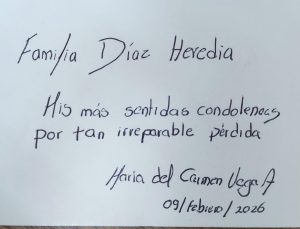 Familia Díaz Heredia
Mis más sentidas condolencas
por tan irreparable pérdida
Maria del Carmen Vega A
09/febrero/2026